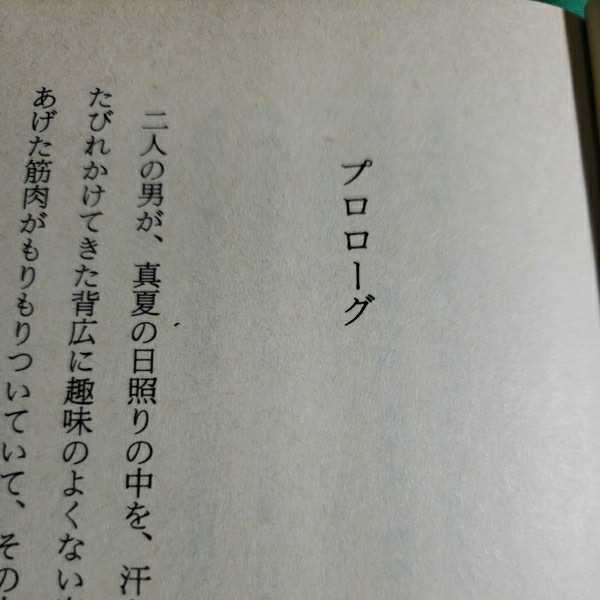 プロローグ
二人の男が、真夏の日照りの中を、汗
たびれかけてきた背広に趣味のよくない
あげた筋肉がもりもりついていて、その